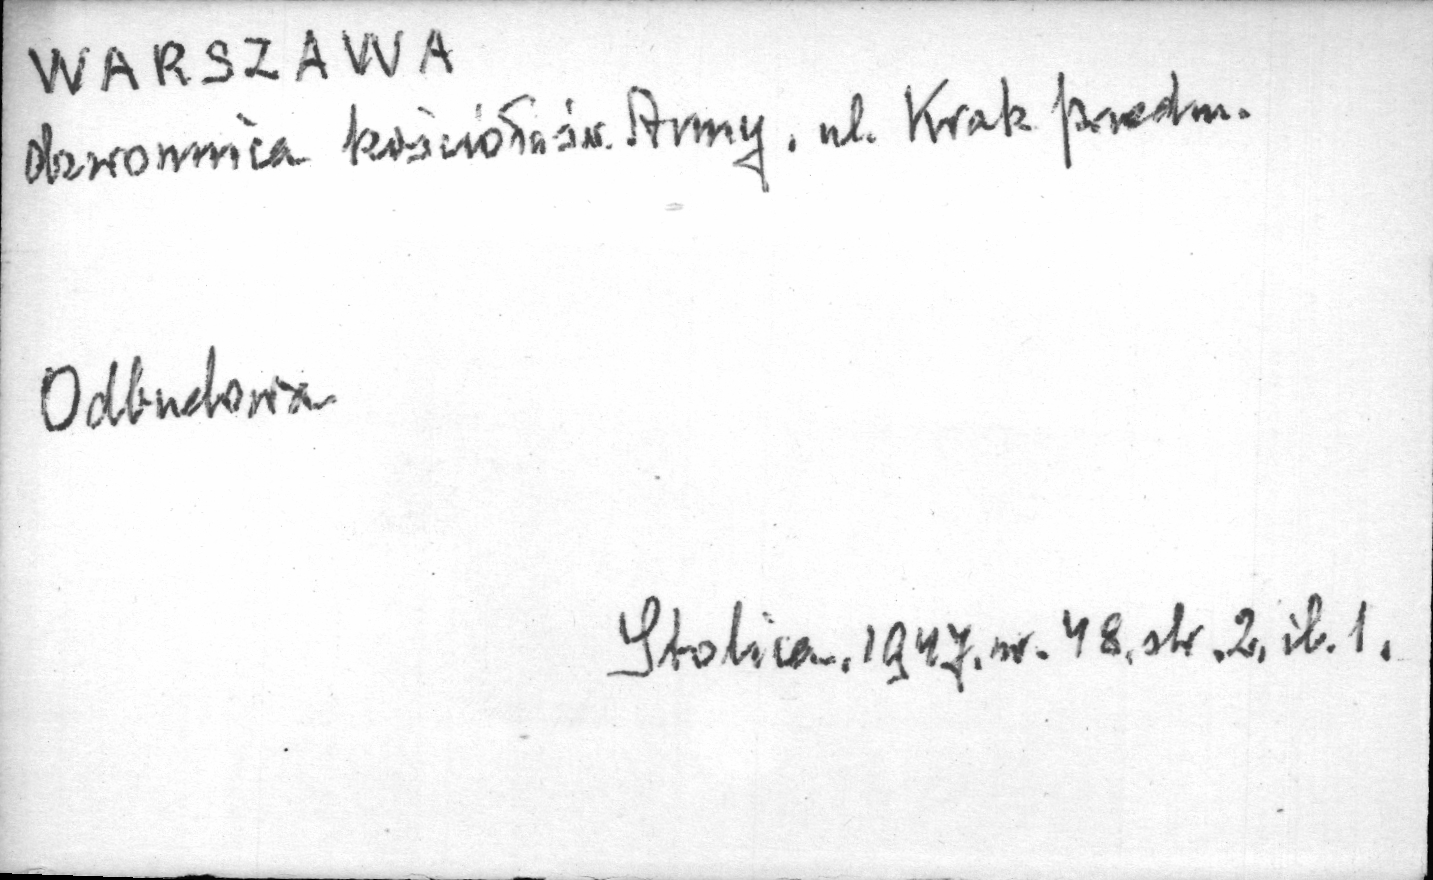 WARSZAWA
dzwonnica kościoła św. Anny, ul. Krak przedm.
Odbudowa
Stolica, 1947, nr. 48, str. 2, il. 1.